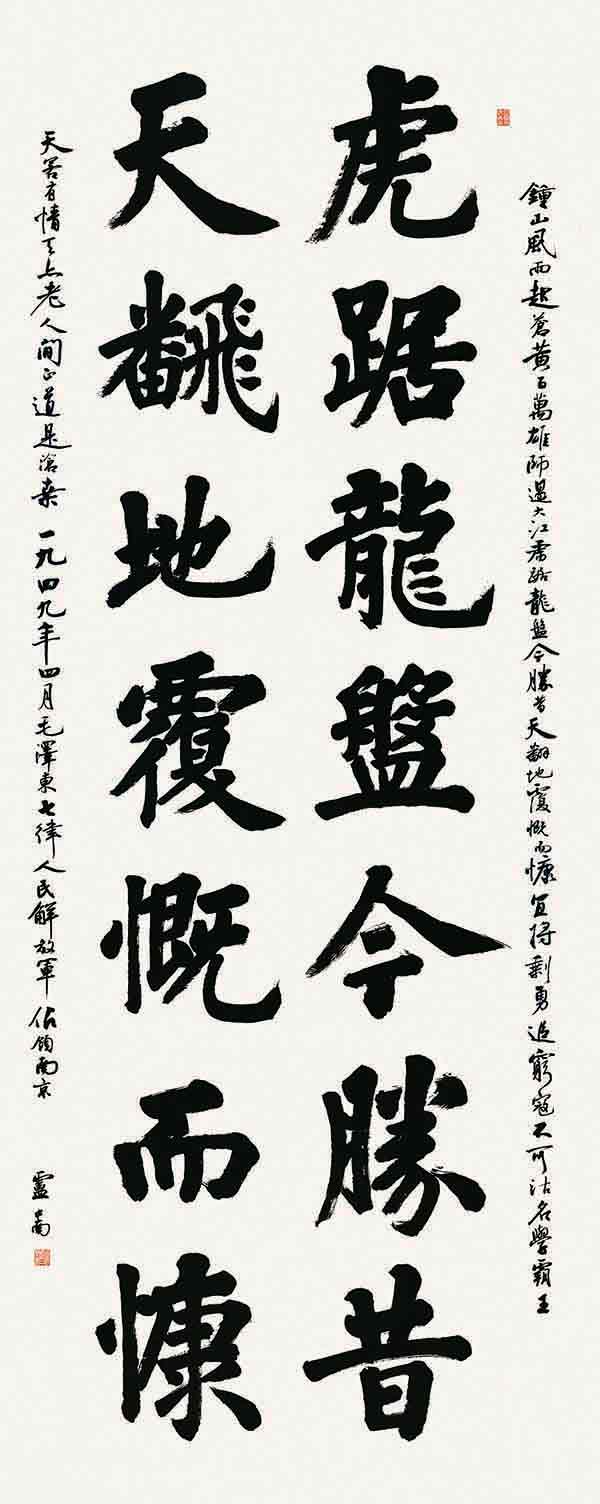 鐘山風雨起蒼黃百萬雄師過大江虎踞龍盤今勝昔天翻地覆慨而慷宜將剩勇追窮寇不可沽名學霸王
虎踞龍盤今勝昔
天飜地覆慨而慷
天若有情天亦老人間正道是滄桑 一九四九年四月毛澤東七律人民解放軍佔領南京 盧